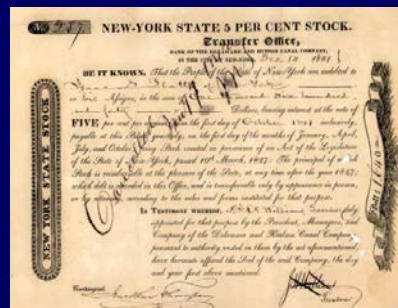 No. 957
NEW-YORK STATE 5 PER CENT STOCK.
Transfer Office,
BANK OF THE DELAWARE AND HUDSON CANAL COMPANY,
IN THE CITY OF NEW-YORK, Dec 14 1831
BE IT KNOWN, That the People of the State of New-York are indebted to
or Assigns, in the sum of hundred
Dollars, bearing interest at the rate of
FIVE per cent per annum the first day of October 1831 inclusively,
payable at this quarterly, on the first day of the months of January, April,
July, and October being Stock created in pursuance of an Act of the Legislature
of the State of New-York, passed 10th March, 1827; The principal of which
Stock is reimbursable at the pleasure of the State, at any time after the year 1847;
which debt is recorded in this Office, and is transferable only by appearance in person,
or by attorney, according to the rules and forms instituted for that purpose.
IN TESTIMONY WHEREOF, I, Williams
appointed for that purpose by the President, Managers, and
Company of the Delaware and Hudson Canal Company,
pursuant to authority vested in them by the act aforementioned
have hereunto affixed the Seal of the said Company, the day
and year first above mentioned.
Countersigned,
Jonathan Thompson
NEW YORK STATE STOCK
Cancelled